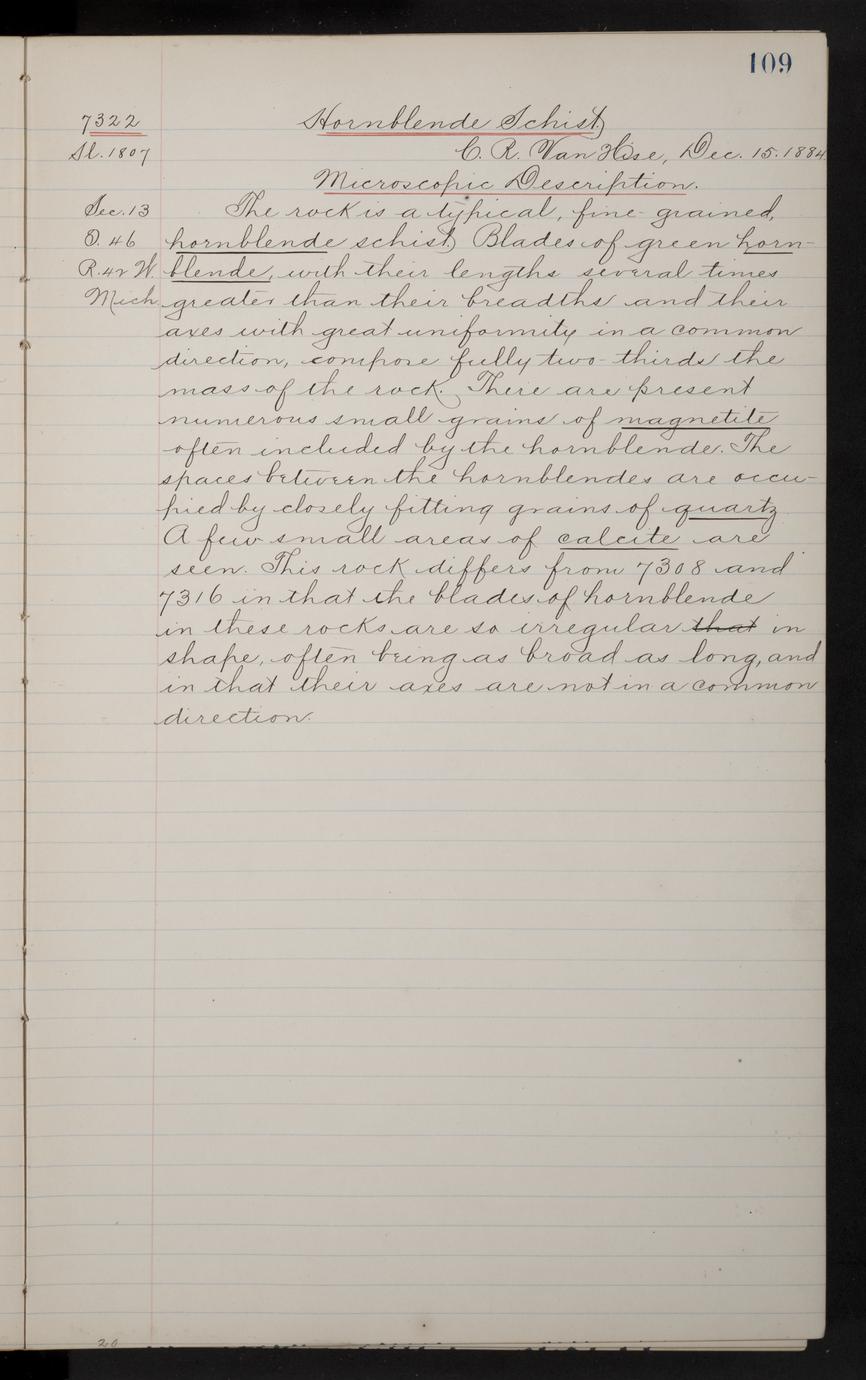 109
7322 Hornblende Schist
Sl. 1807 C. R. Van Hise, Dec. 15. 1884
Microscopic Description.
Sec. 13 The rock is a typical, fine-grained,
T. 46 hornblende schist. Blades of green horn-
R. 42 W. blende, with their lengths several times
Mich. greater than their breadths and their
axes with great uniformity in a common
direction, compose fully two-thirds the
mass of the rock. There are present
numerous small grains of magnetite
often included by the hornblende. The
spaces between the hornblendes are occu-
pied by closely fitting grains of quartz
A few small areas of calcite are
seen. This rock differs from 7308 and
7316 in that the blades of hornblende
in these rocks are so irregular that in
shape, often being as broad as long, and
in that their axes are not in a common
direction.
20